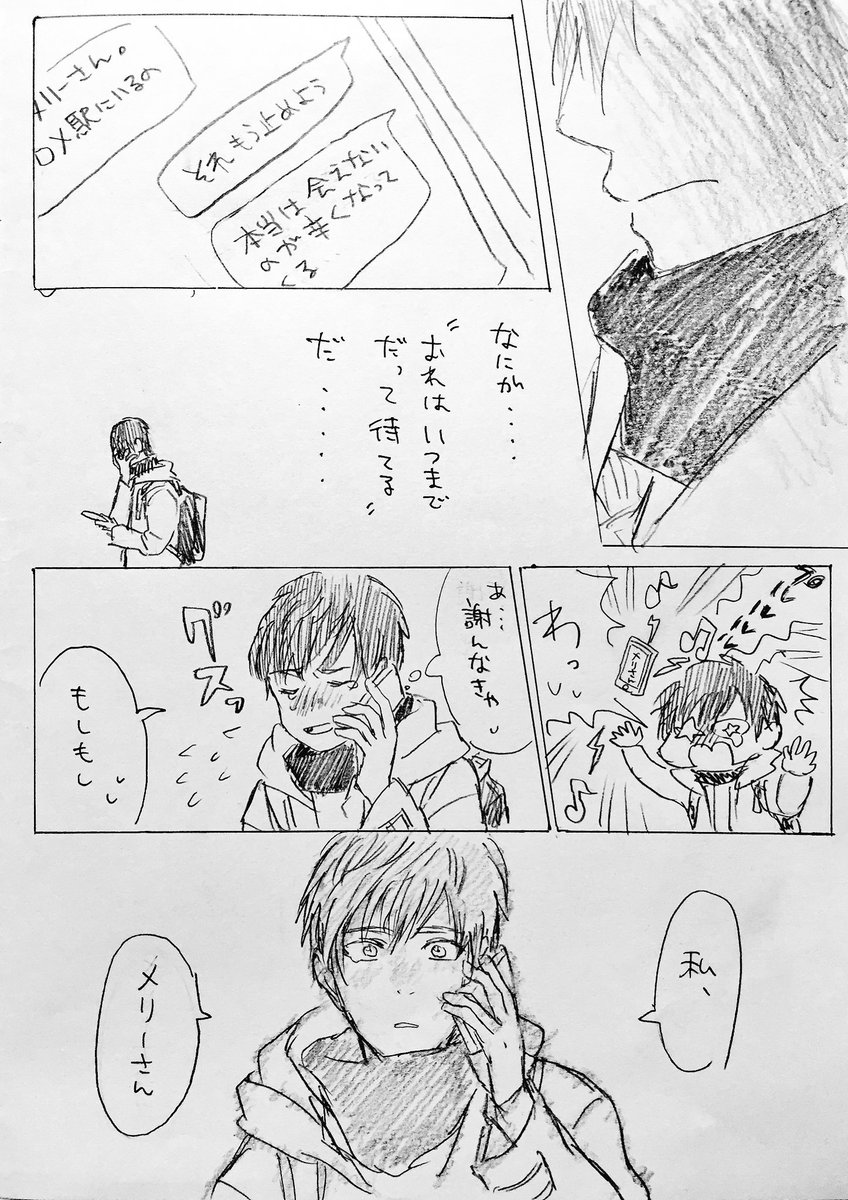 メリーさん。
ロ×駅にいるの
それもう止めよう
本当は会えない
のが辛くなって
くる
なにが....
〝おれはいつまで
だって待てる〟
だ.....
わっ
メリーさん
あ...
謝んなきゃ
グスッ
もしもし
私、
メリーさん